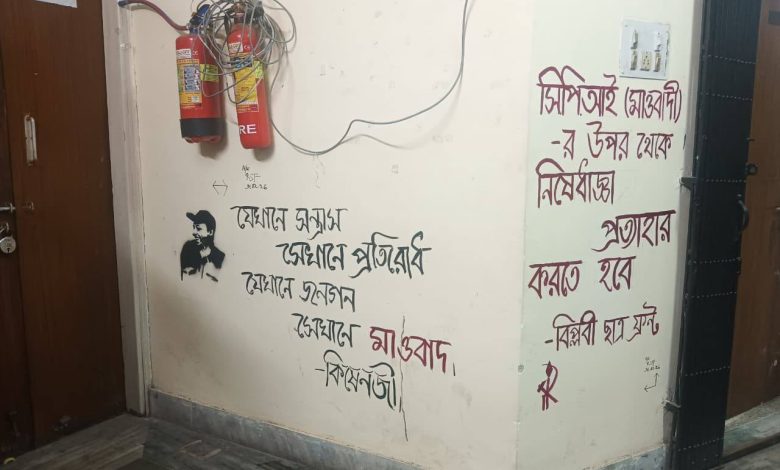 যেখানে সন্ত্রাস
সেখানে প্রতিরোধ
যেখানে জনগন
সেখানে মাওবাদ
-কিষেনজী
সিপিআই (মাওবাদী)
-র উপর থেকে
নিষেধাজ্ঞা
প্রত্যাহার
করতে হবে
-বিপ্লবী ছাত্র ফ্রন্ট
FIRE